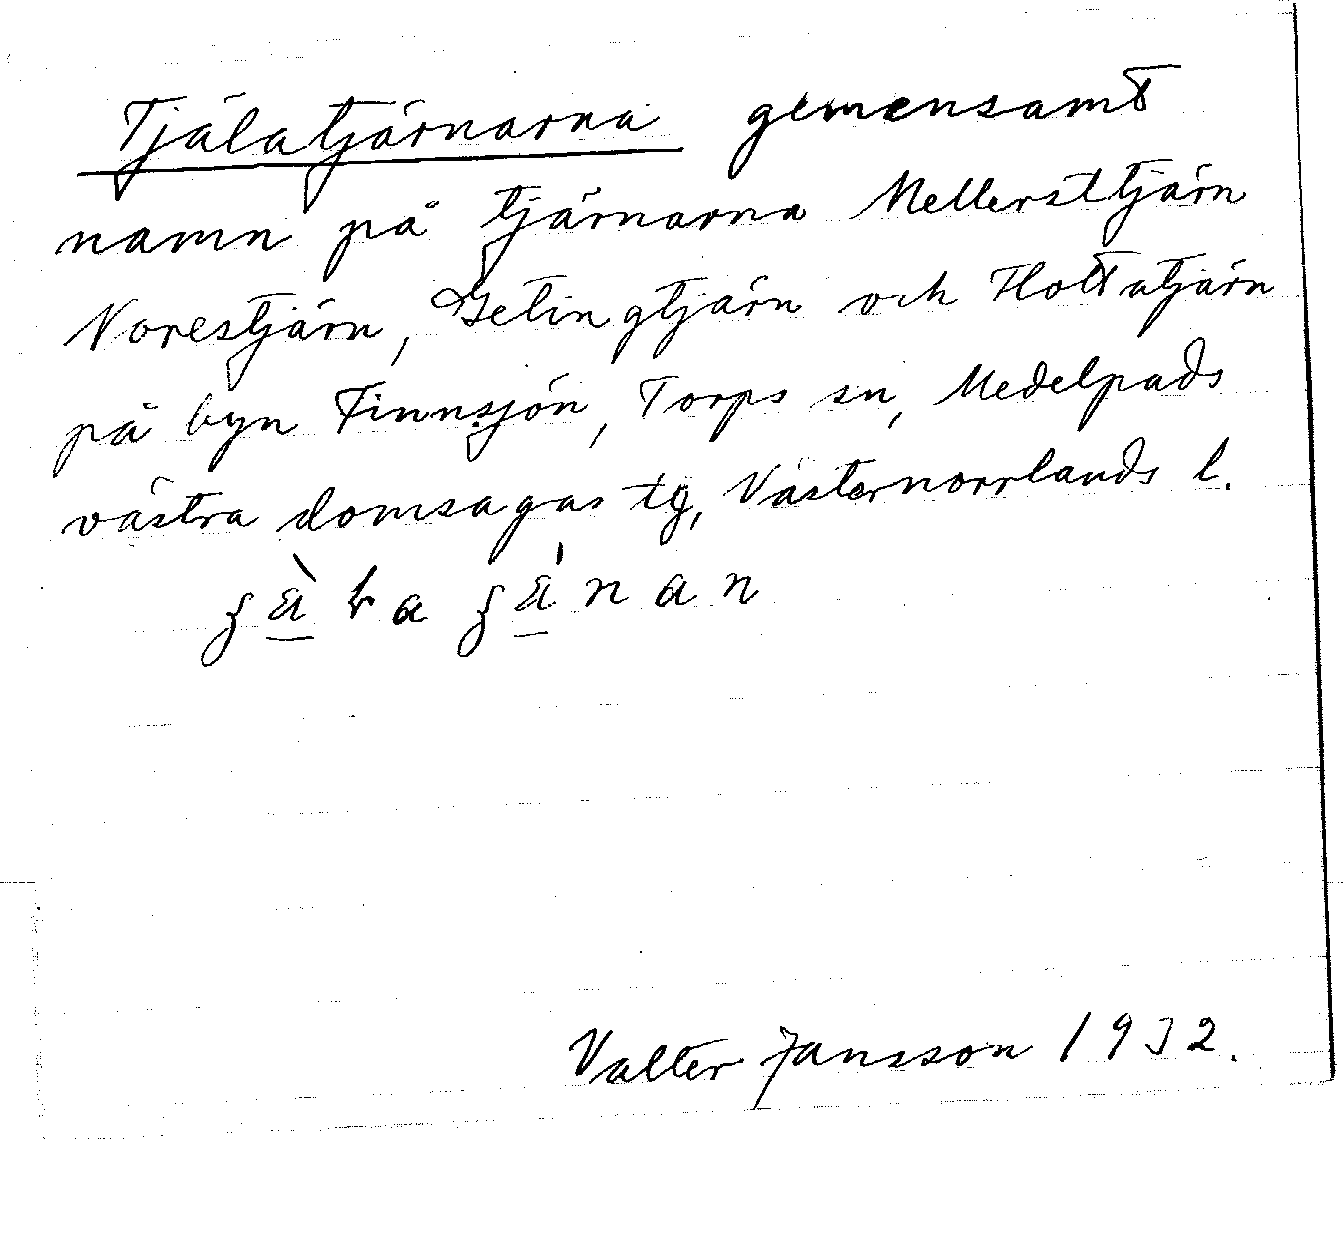 Tjälatjärnarna gemensamt
namn på tjärnarna Mellersttjärn
Norestjärn, Getingtjärn och Holtatjärn
på byn Finnsjön, Torps sn, Medelpads
västra domsagas tg, Västernorrlands l.
Valter Jansson 1932.